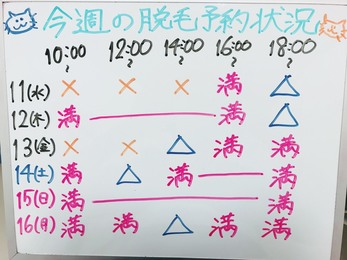 今週の脱毛予約状況
10:00~ 12:00~ 14:00~ 16:00~ 18:00~
11(水) × × × 満 △
12(木) 満 ― 満 △
13(金) × × △ 満 満
14(土) 満 △ 満 ― 満
15(日) 満 ― 満
16(月) 満 満 △ 満 満